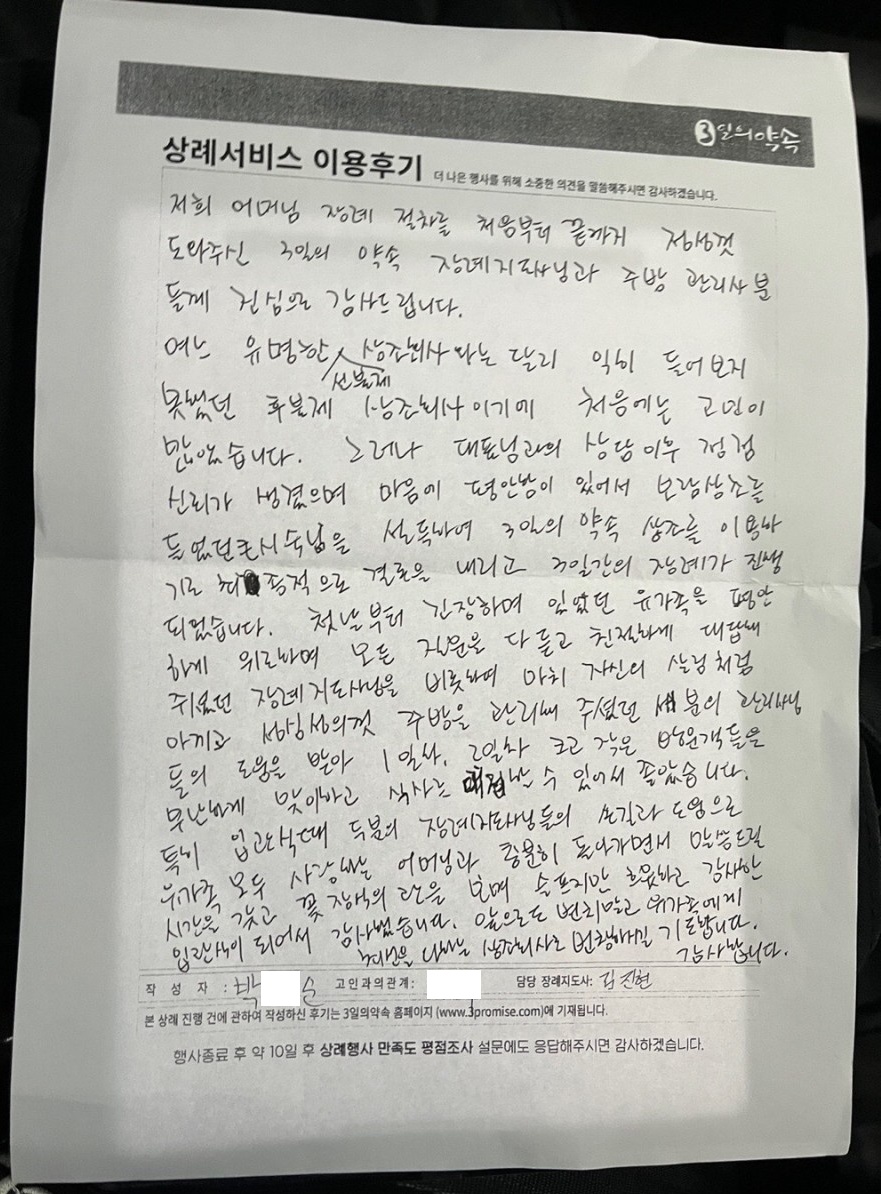 3일의약속
상례서비스 이용후기 더 나은 행사를 위해 소중한 의견을 말씀해주시면 감사하겠습니다.
저희 어머님 장례 절차를 처음부터 끝까지 정성껏
도와주신 3일의 약속 장례지도사님과 주방 관리사분
들께 진심으로 감사드립니다.
여느 유명한 선불제 상조회사와는 달리 익히 들어보지
못했던 후불제 상조회사이기에 처음에는 고민이
많았습니다. 그러나 대표님과의 상담이후 점점
신뢰가 생겼으며 마음에 평안함이 있어서 보람상조를
들었던 시숙님을 설득하여 3일의 약속 상조를 이용하
기로 최종적으로 결론을 내리고 3일간의 장례가 진행
되었습니다. 첫날부터 긴장하며 있었던 유가족을 평안
하게 위로하며 모든 질문을 다 듣고 친절하게 대답해
주셨던 장례지도사님을 비롯하여 마치 자신의 살림처럼
아끼고 성심성의껏 주방을 관리해 주셨던 세분의 관리사님
들의 도움을 받아 1일차, 2일차 크고 작은 방문객들을
무난하게 맞이하고 식사로 대접할 수 있어서 좋았습니다.
특히 입관식때 두분의 장례지도사님들의 손길과 도움으로
유가족 모두 사랑하는 어머님과 충분히 돌아가면서 말씀드릴
시간을 갖고 꽃장식의 관을 보며 슬프지만 흐뭇하고 감사한
입관식이 되어서 감사했습니다. 앞으로도 변치말고 유가족에게
최선을 다하는 상조회사로 번창하길 기도합니다.
감사합니다.
작 성 자 : 박 순 고인과의관계: 담당 장례지도사: 김진현
본 상례 진행 건에 관하여 작성하신 후기는 3일의약속 홈페이지 (www.3promise.com)에 기재됩니다.
행사종료 후 약 10일 후 상례행사 만족도 평점조사 설문에도 응답해주시면 감사하겠습니다.